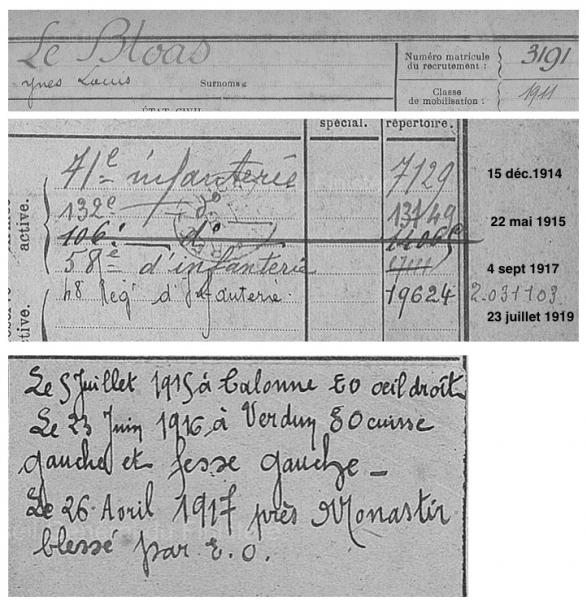 Le Bloas
Yves Louis Surnoms:
Numéro matricule du recrutement : 3191
Classe de mobilisation : 1911
ÉTAT CIVIL
spécial. répertoire.
active.
71e infanterie 7129 15 déc.1914
132e do 13749 22 mai 1915
106e do
58e d'infanterie 4 sept 1917
48 Reg d'Infanterie. 19624 2.031103
ctive. 23 juillet 1919
Le 5 Juillet 1915 à Calonne EO oeil droit
Le 23 Juin 1916 à Verdun EO cuisse
gauche et fesse gauche _
Le 26 Avril 1917 près Monastir
blessé par E.O.